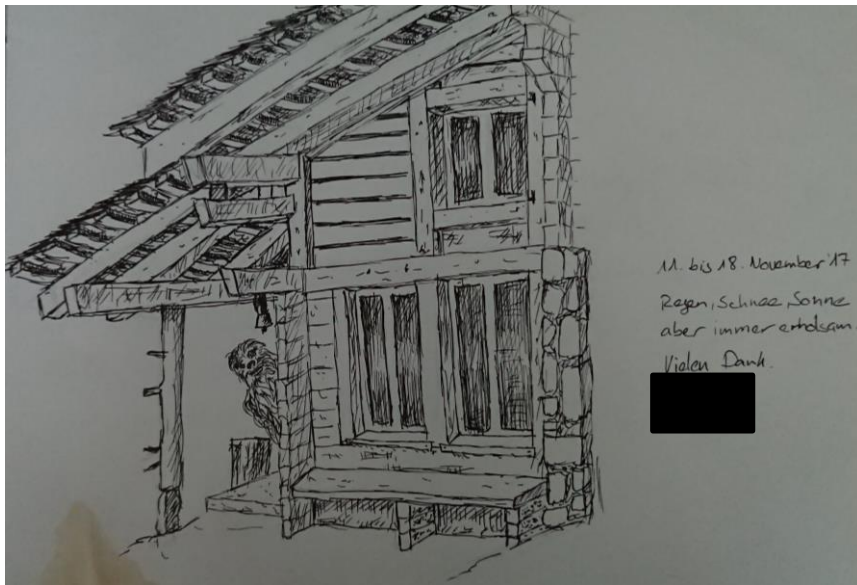 11. bis 18. November '17
Regen, Schnee, Sonne
aber immer erholsam
Vielen Dank.